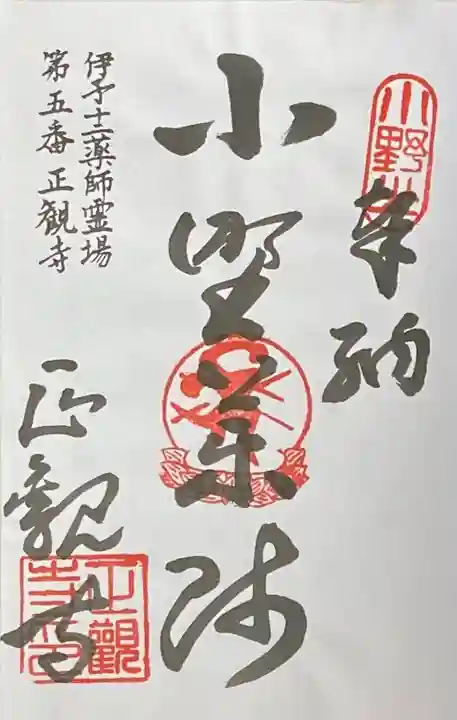 奉納
小野薬師
伊予十二薬師霊場
第五番 正観寺
正観寺
小野山
正觀寺印